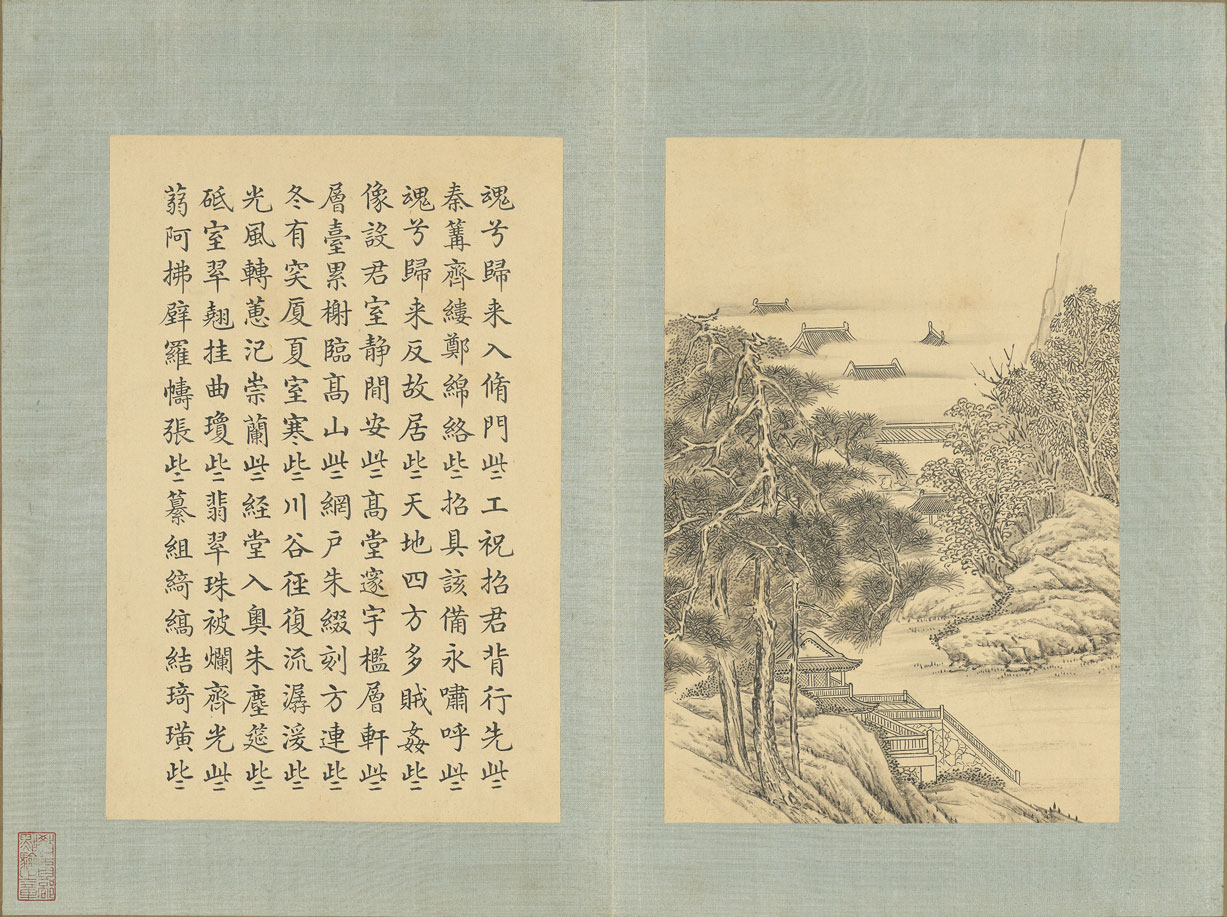 魂兮歸来入脩門些工祝招君背行先些
秦篝齊縷鄭綿絡些招具該備永嘯呼些
魂兮歸来反故居些天地四方多賊姦些
像設君室静間安些髙堂邃宇檻層軒些
層臺累榭臨髙山些網戸朱綴刻方連些
冬有突厦夏室寒些川谷徑復流潺湲些
光風轉蕙氾崇蘭些経堂入奧朱塵筵些
砥室翠翹挂曲瓊些翡翠珠被爛齊光些
蒻阿拂壁羅幬張些纂組綺縞結琦璜些